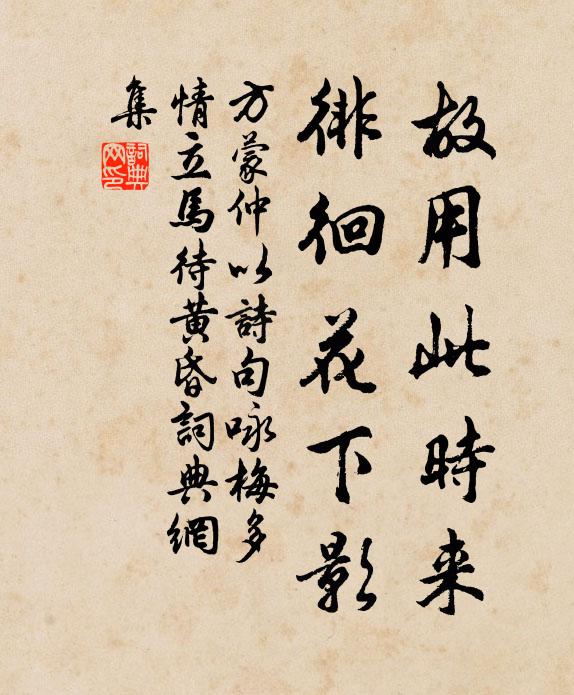 故用此時来
徘徊花下影
方蒙仲以詩句咏梅多
情立馬待黄昏詞典網
集
詞典
网印